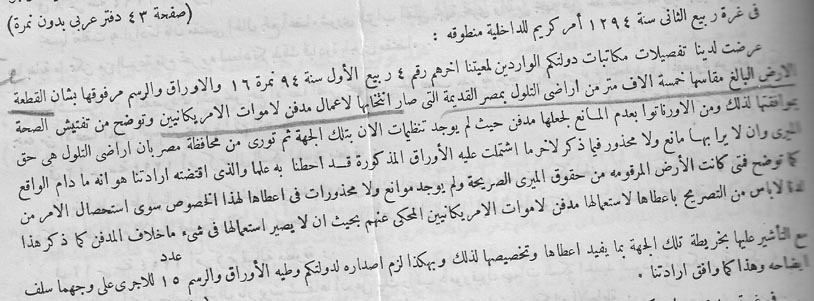 فى غرة ربيع الثانى سنة ١٢٩٤ أمر كريم للداخلية منطوقه : (صفحة ٤٣ دفتر عربى بدون نمرة)
عرضت لدينا تفصيلات مكاتبات دولتكم الواردين لمعيتنا اخرهم رقم ٤ ربيع الأول سنة ٩٤ نمرة ١٦ والاوراق والرسم مرفوقها بشان القطعة
الارض البالغ مقاسها خمسة الاف متر من اراضى التلول بمصر القديمة التى صار انتخابها لاعمال مدفن لاموات الامريكانيين وتوضح من تفتيش الصحة
بموافقتها لذلك ومن الاورناتوا بعدم المانع لجعلها مدفن حيث لم يوجد تنظيمات الان بتلك الجهة ثم تورى من محافظة مصر بان اراضى التلول هى حق
الميرى وان لا يرا بها مانع ولا محذور فيما ذكر لاخر ما اشتملت عليه الأوراق المذكورة قد احطنا به علما والذى اقتضته ارادتنا هو انه ما دام الواقع
كما توضح فمتى كانت الأرض المرقومه من حقوق الميرى الصريحة ولم يوجد موانع ولا محذورات فى اعطاها لهذا الخصوص سوى استحصال الامر من
لدنا لاباس من التصريح باعطاها لاستعمالها مدفن لاموات الامريكانيين المحكى عنهم بحيث ان لا يصير استعمالها فى شىء ما خلاف المدفن كما ذكر هذا
مع التأشير عليها بخريطة تلك الجهة بما يفيد اعطاها وتخصيصها لذلك وبهكذا لزم اصداره لدولتكم وطيه الأوراق والرسم عدد ١٥ للاجرى على وجهما سلف
ايضاحه وهذا كما وافق ارادتنا .